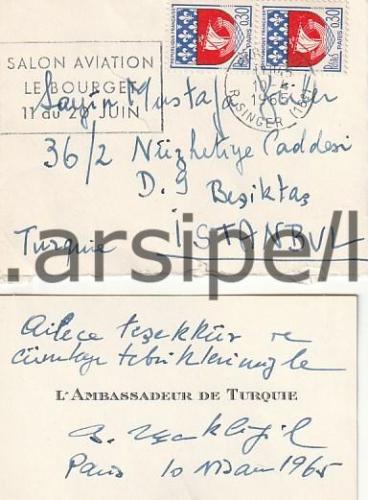 REPUBLIQUE FRANÇAISE 0,30 PARIS
REPUBLIQUE FRANÇAISE 0,30 PARIS
SALON AVIATION
LE BOURGET
11 au 20 JUIN
1965
Sayın Mustafa
36/2 Nüzhetiye Caddesi
D. 9 Beşiktaş
Turquie İSTANBUL
.arsipe/l
Ailece teşekkür ve
cümleye tebriklerimizle
L'AMBASSADEUR DE TURQUIE
Paris 10 Nisan 1965